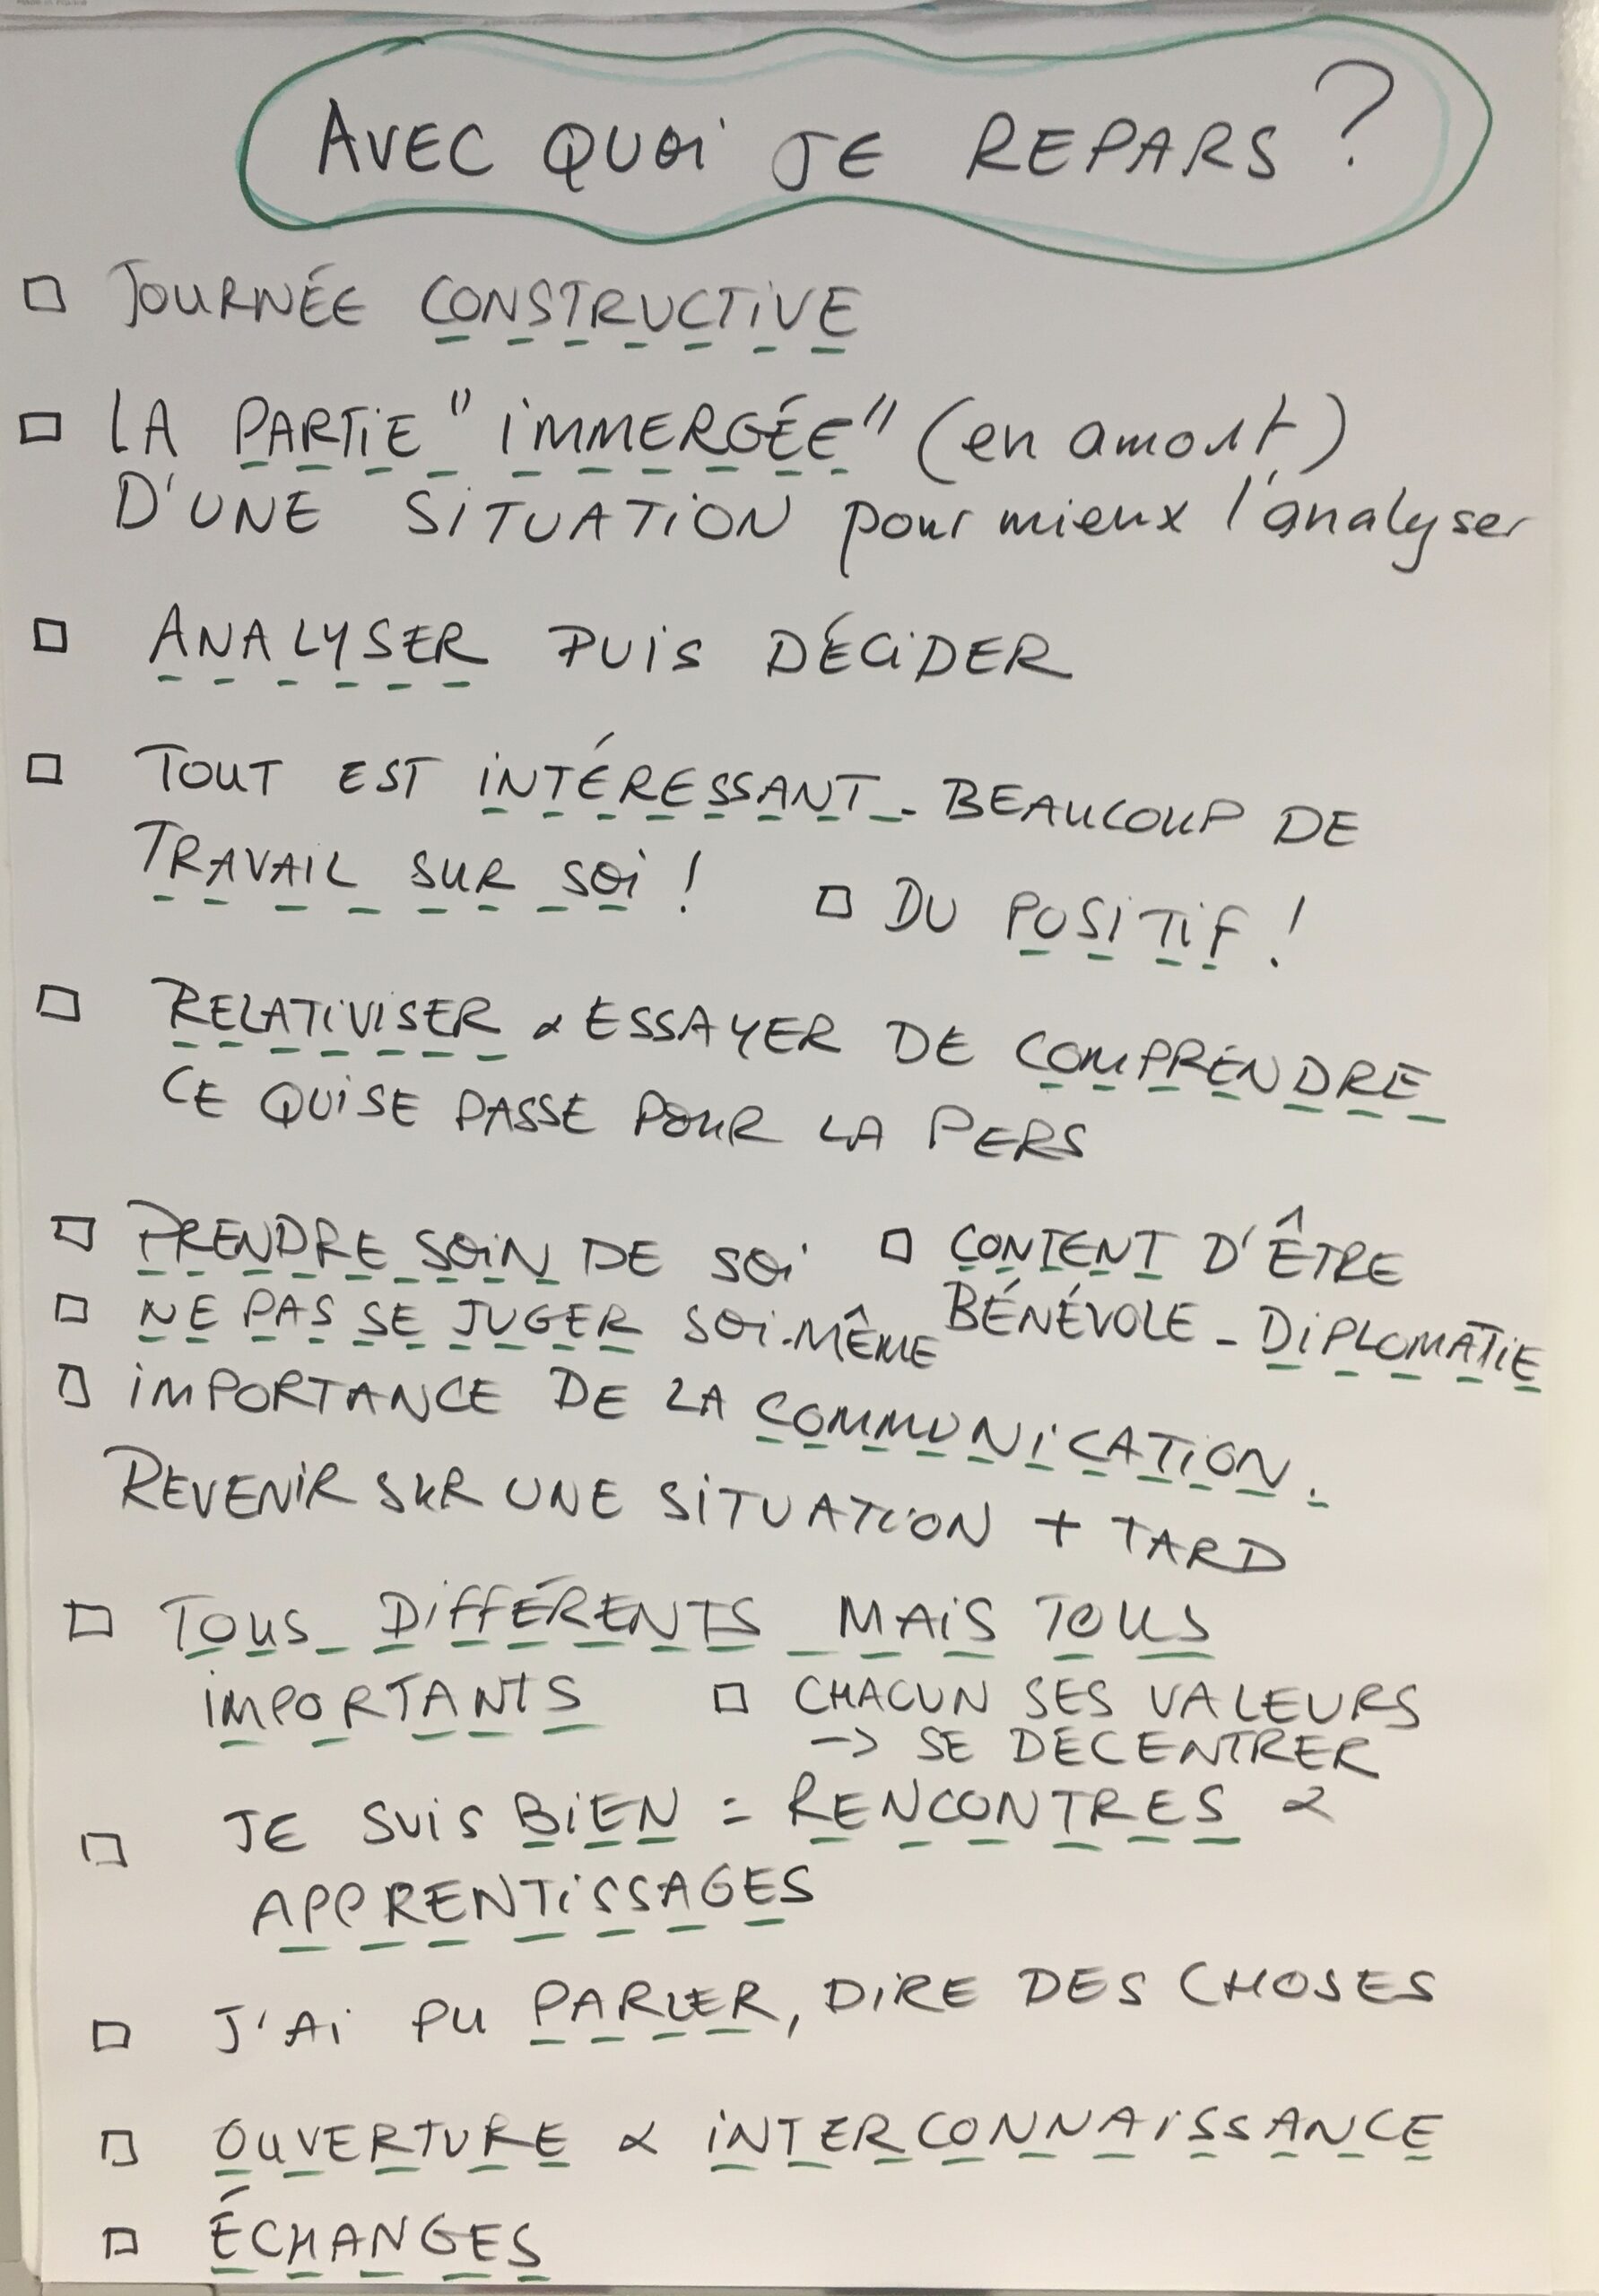 AVEC QUOI JE REPARS ?
□ JOURNÉE CONSTRUCTIVE
□ LA PARTIE "IMMERGÉE" (en amont)
D'UNE SITUATION pour mieux l'analyser
□ ANALYSER PUIS DÉCIDER
□ TOUT EST INTÉRESSANT - BEAUCOUP DE
TRAVAIL SUR SOI !
□ DU POSITIF !
□ RELATIVISER & ESSAYER DE COMPRENDRE
CE QUI SE PASSE POUR LA PERS
□ PRENDRE SOIN DE SOI
□ CONTENT D'ÊTRE
BÉNÉVOLE - DIPLOMATIE
□ NE PAS SE JUGER SOI-MÊME
□ IMPORTANCE DE LA COMMUNICATION.
REVENIR SUR UNE SITUATION + TARD
□ TOUS DIFFÉRENTS MAIS TOUS
IMPORTANTS
□ CHACUN SES VALEURS
-> SE DECENTRER
□ JE SUIS BIEN = RENCONTRES &
APPRENTISSAGES
□ J'AI PU PARLER, DIRE DES CHOSES
□ OUVERTURE & INTERCONNAISSANCE
□ ÉCHANGES